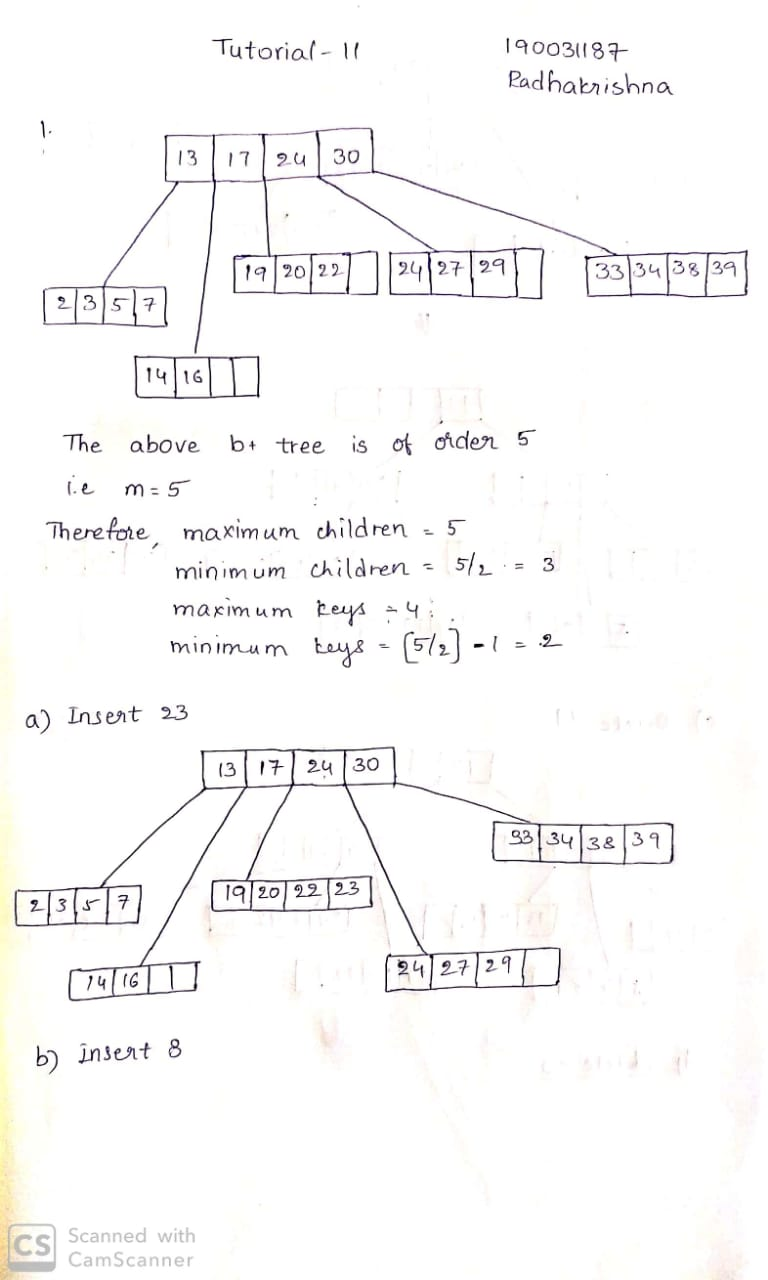 Tutorial - 11
190031187
Radhakrishna
1.
13 17 24 30
19 20 22
24 27 29
33 34 38 39
2 3 5 7
14 16
The above b+ tree is of order 5
i.e m = 5
Therefore, maximum children = 5
minimum children = 5/2 = 3
maximum keys = 4
minimum keys = [5/2] - 1 = 2
a) Insert 23
13 17 24 30
33 34 38 39
2 3 5 7
19 20 22 23
14 16
24 27 29
b) insert 8
CS Scanned with
CamScanner